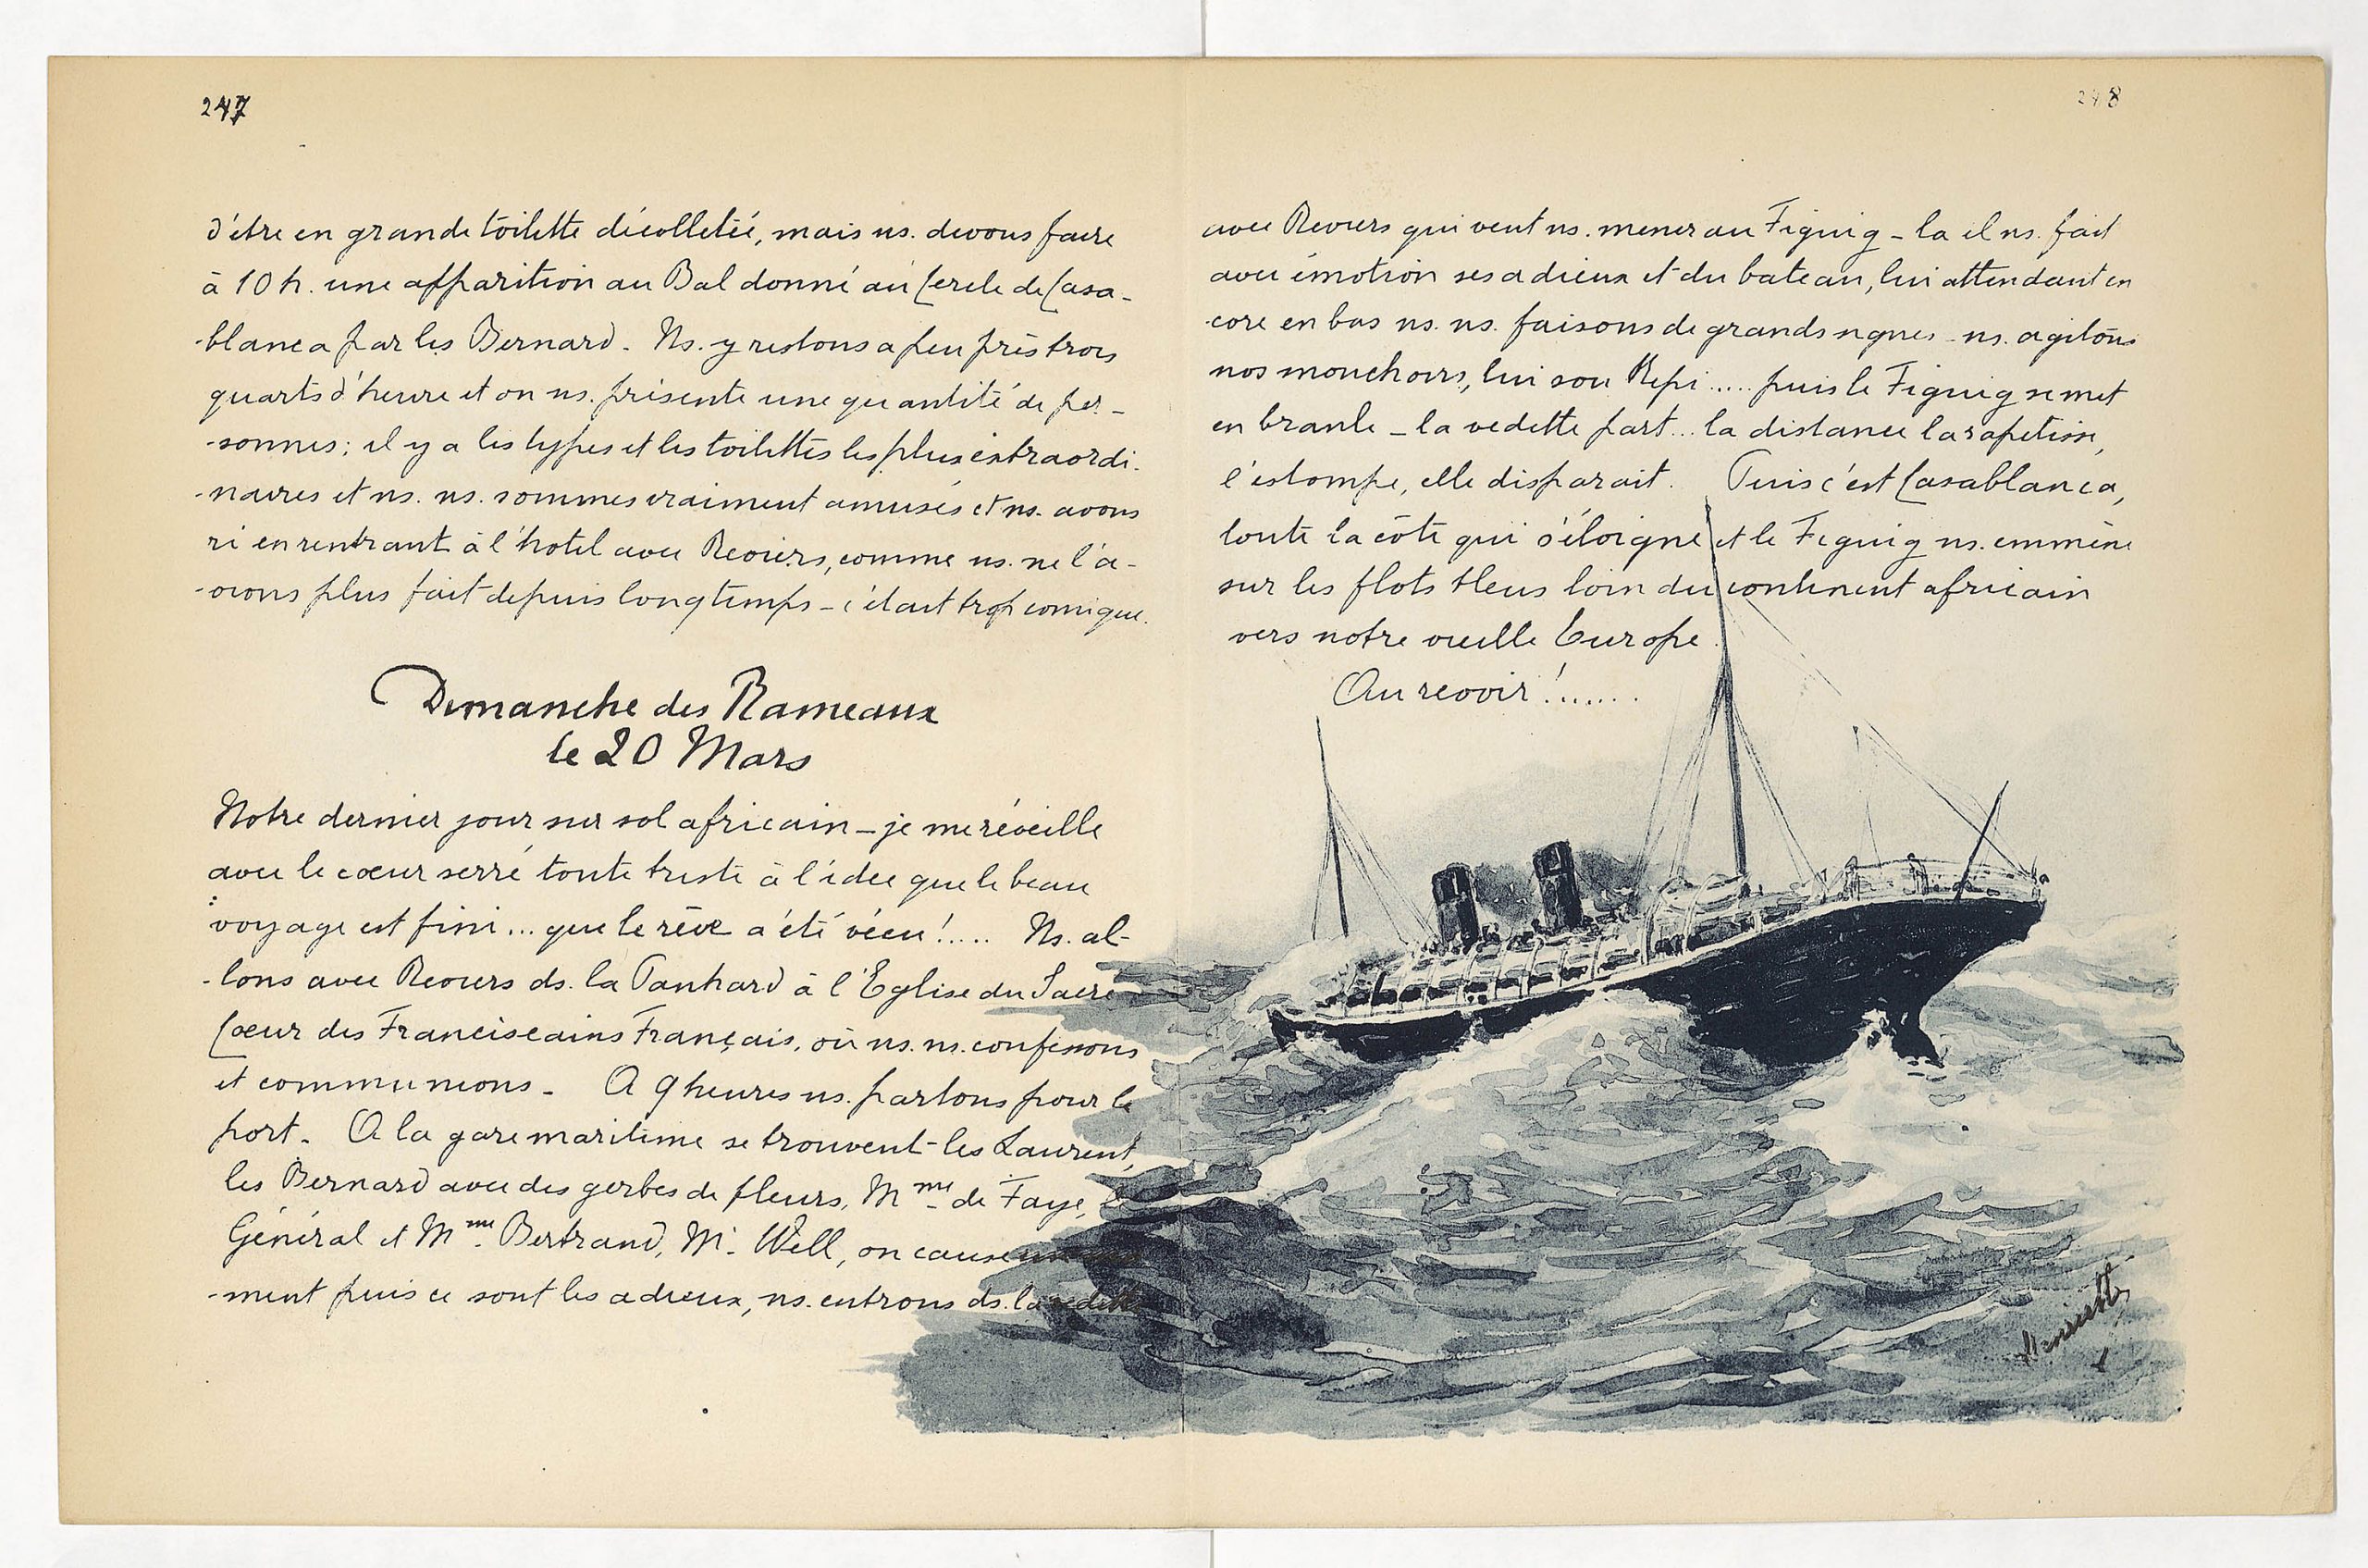 247
d'être en grande toilette décolletée, mais ns. devons faire
à 10 h. une apparition au Bal donné au Cercle de Casa-
-blanca par les Bernard. Ns. y restons a peu près trois
quarts d'heure et on ns. présente une quantité de per-
-sonnes; il y a les types et les toilettes les plus extraordi-
-naires et ns. ns. sommes vraiment amusés et ns. avons
ri en rentrant à l'hotel avec Reviers, comme ns. ne l'a-
-vions plus fait depuis longtemps - c'était trop comique.
Dimanche des Rameaux
le 20 Mars
Notre dernier jour sur sol africain - je me réveille
avec le cœur serré toute triste à l'idée que le beau
voyage est fini ... que le rêve a été vécu!..... Ns. al-
-lons avec Reviers ds. la Panhard à l'Eglise du Sacré
Cœur des Franciscains Français, où ns. ns. confessons
et communions - A 9 heures ns. partons pour le
port. A la gare maritime se trouvent les Laurent,
les Bernard avec des gerbes de fleurs, Mme de Faye, le
Général et Mme Bertrand, Mr. Well, on cause
-ment puis ce sont les adieux, ns. entrons ds. la vedette
248
avec Reviers qui veut ns. mener au Figuig - la il ns. fait
avec émotion ses adieux et du bateau, lui attendant en
-core en bas ns. ns. faisons de grands signes - ns. agitons
nos mouchoirs, lui son Kepi ..... puis le Figuig se met
en branle - la vedette part... la distance la rapetisse,
l'estompe, elle disparait. Puis c'est Casablanca,
toute la côte qui s'éloigne et le Figuig ns. emmène
sur les flots bleus loin du continent africain
vers notre vieille Europe.
Au revoir!......